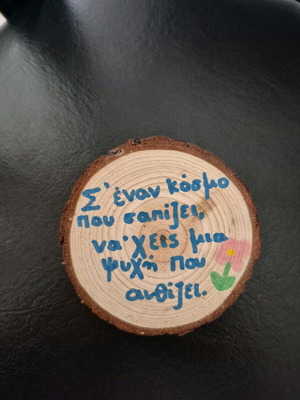 Σ' έναν κόσμο
που σαπίζει,
να 'χεις μια
ψυχή που
ανθίζει.